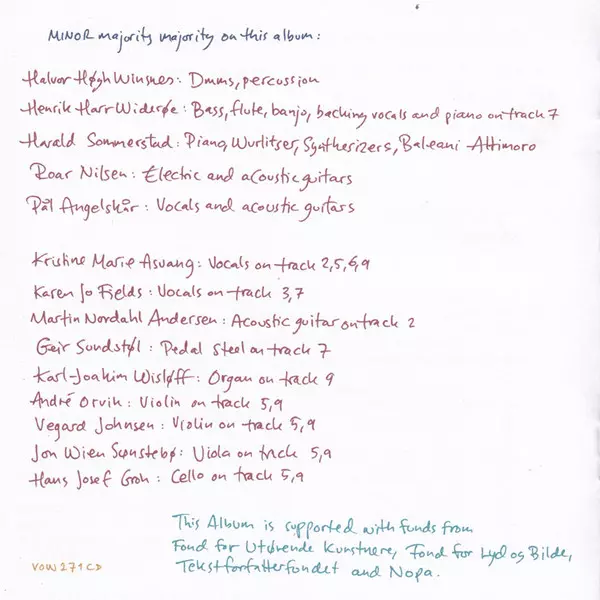 MINOR majority majority on this album:
Halvor Høgh Winsnes: Drums, percussion
Henrik Harr Widerøe: Bass, flute, banjo, backing vocals and piano on track 7
Harald Sommerstad: Piano, Wurlitser, Synthesizers, Baleani Attimoro
Roar Nilsen: Electric and acoustic guitars
Pål Angelskår: Vocals and acoustic guitars
Kristine Marie Asvang: Vocals on track 2,5,6,9
Karen Jo Fields: Vocals on track 3,7
Martin Nordahl Andersen: Acoustic guitar on track 2
Geir Sundstøl: Pedal Steel on track 7
Karl-Joakim Wisløff: Organ on track 9
André Orvik: Violin on track 5,9
Vegard Johnsen: Violin on track 5,9
Jon Wien Sønstebø: Viola on track 5,9
Hans Josef Groh: Cello on track 5,9
This Album is supported with funds from
Fond for Utøvende Kunstnere, Fond for Lyd og Bilde,
Tekstforfatterfondet and Nopa.
VOW271CD